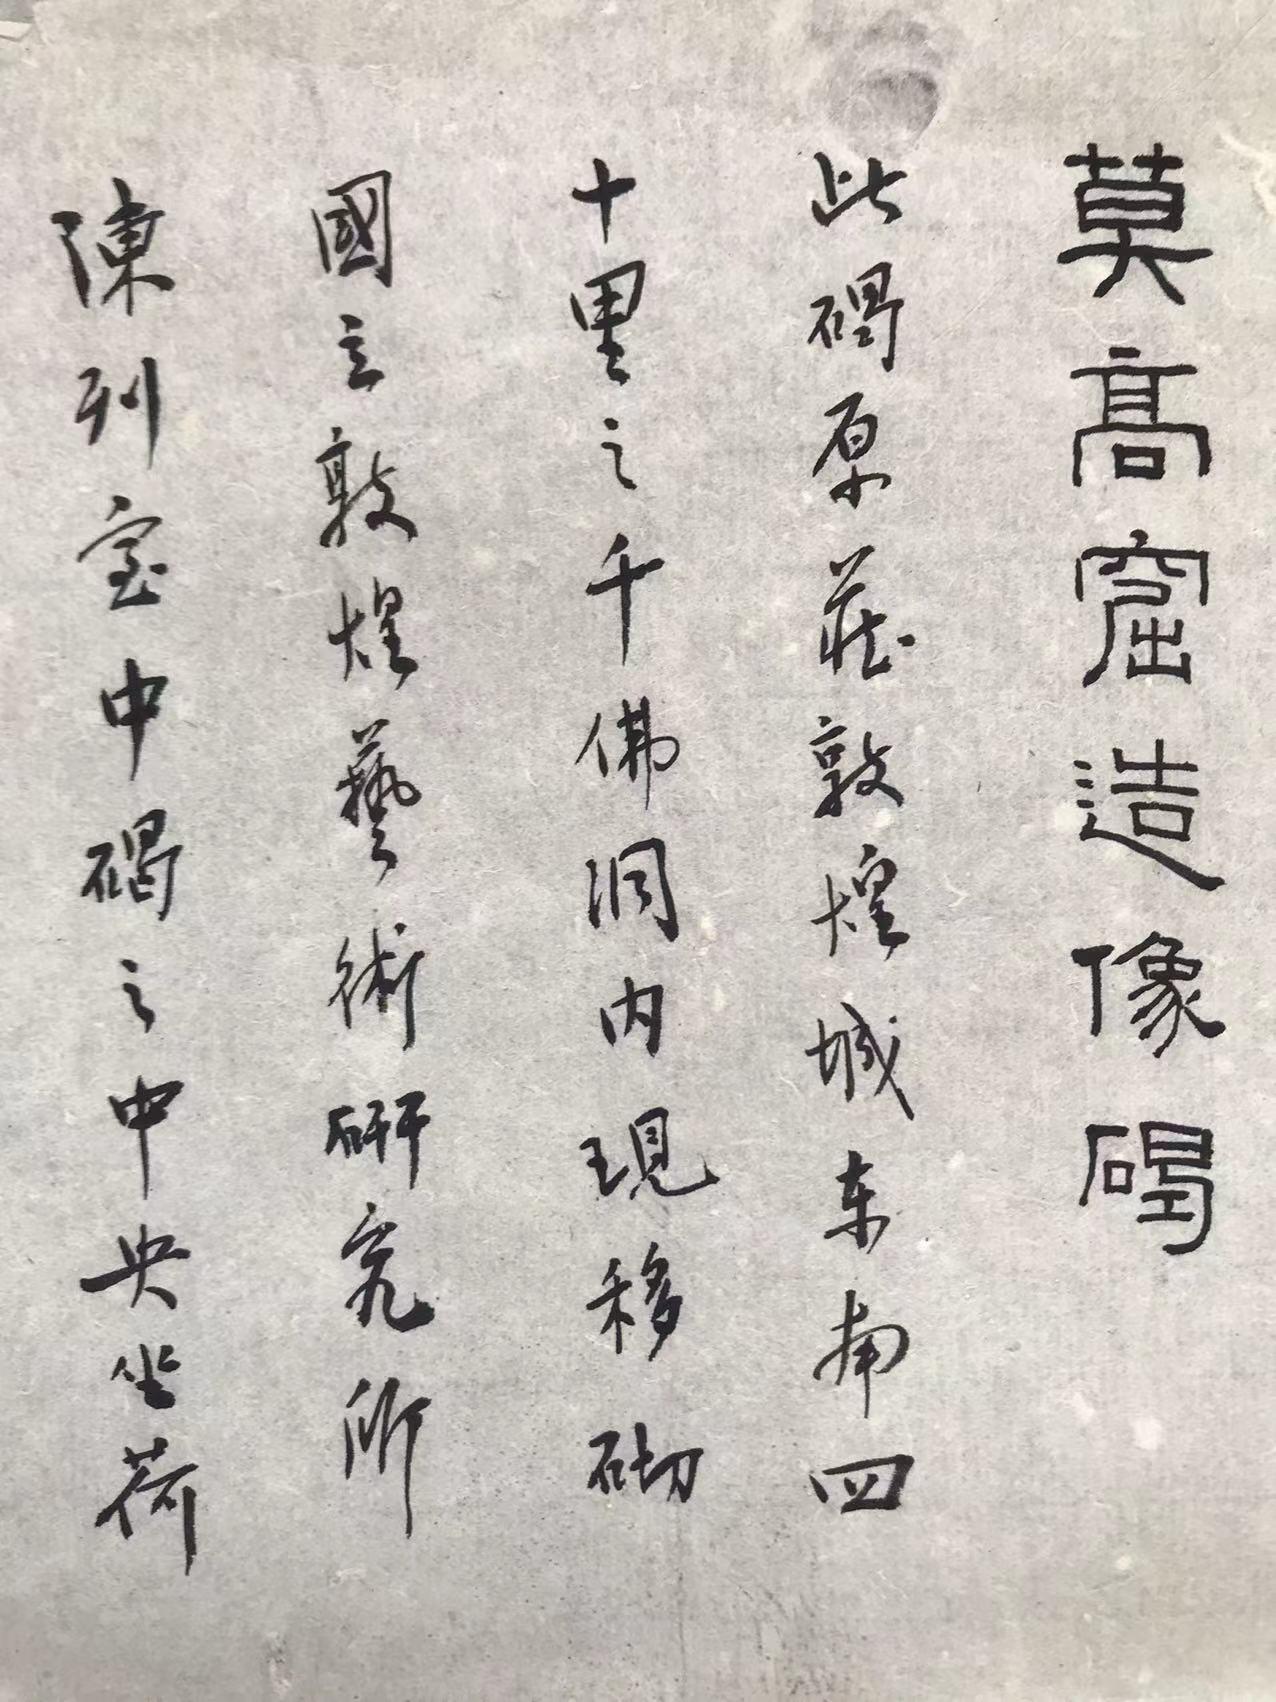 莫高窟造像碣
此碣原在敦煌城东南四
十里之千佛洞内現移砌
國立敦煌藝術研究所
陳列室中碣之中央坐荷